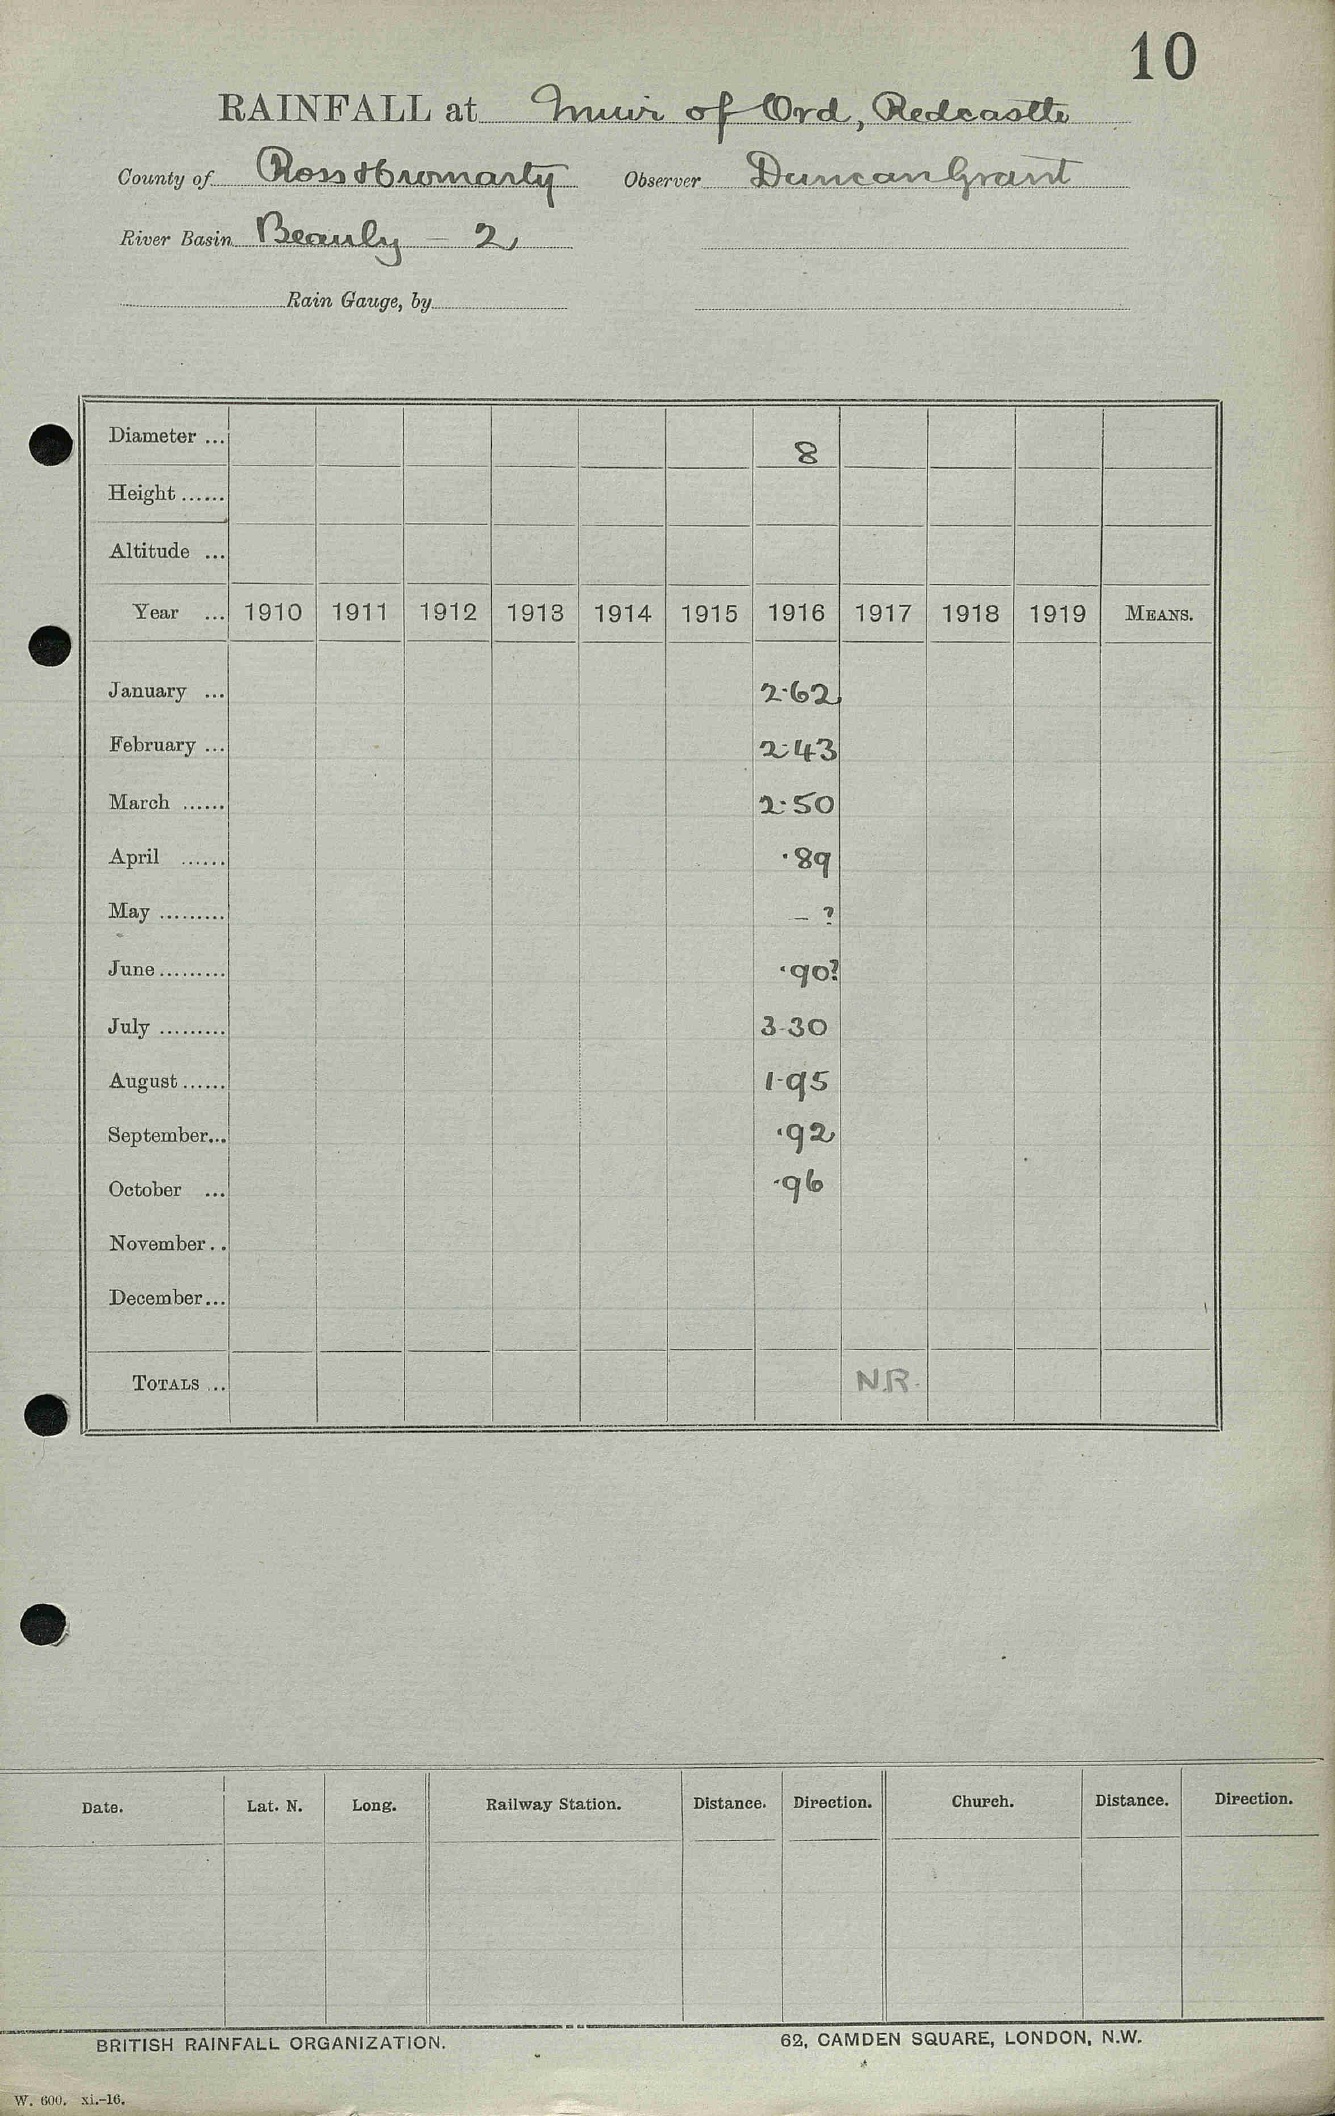 10
RAINFALL at Muir of Ord, Redcastle
County of Ross & Cromarty Observer Duncan Grant
River Basin Beauly - 2
Rain Gauge, by
Diameter ... 8
Height ......
Altitude ...
Year ... 1910 1911 1912 1913 1914 1915 1916 1917 1918 1919 MEANS.
January ... 2.62
February ... 2.43
March ...... 2.50
April ...... .89
May ......... - ?
June ......... .90?
July ......... 3.30
August ...... 1.95
September... .92
October ... .96
November ..
December ...
TOTALS ... N.R.
Date. Lat. N. Long. Railway Station. Distance. Direction. Church. Distance. Direction.
BRITISH RAINFALL ORGANIZATION. 62, CAMDEN SQUARE, LONDON, N.W.
W. 600. xi.-16.